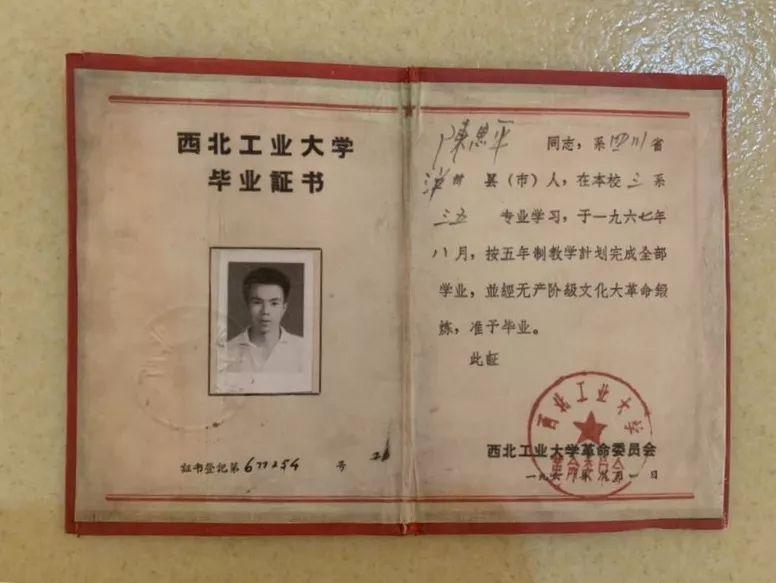 西北工业大学
毕业証书
証书登记第677254号
陳思平 同志，系四川省
县（市）人，在本校三系
三五 专业学习，于一九六七年
八月，按五年制教学計划完成全部
学业，並經无产阶级文化大革命鍛
炼，准予毕业。
此証
西北工业大学
革命委员会
西北工业大学革命委员会
一九六 年 月一日